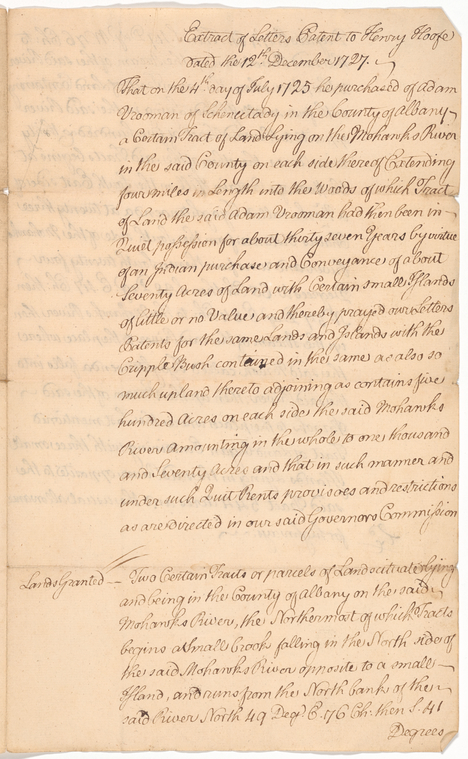 Extract of Letters Patent to Henry Hoofe
Dated the 12th December 1727.
That on the 4th day of July 1725 he purchased of adam
Vrooman of Schenectady in the County of Albany
a Certain Tract of Land Lying on the Mohawks River
in the said County on each side thereof Extending
four miles in Length into the Woods of which Tract
of Land the said Adam Vrooman had then been in
Quiet possession for about thirty seven Years by virtue
of an Indian purchase and Conveyance of about
Seventy Acres of Land with Certain small Islands
of little or no Value and thereby prayed our Letters
Patents for the same Lands and Islands with the
Cripple Bush contained in the same as also so
much upland thereto adjoining as contains five
hundred Acres on each side the said Mohawks
River amounting in the whole to one thousand
and Seventy Acres and that in such manner and
under such Quit Rents provisoes and restrictions
as are directed in our said Governors Commission
Lands Granted — Two Certain Tracts or parcels of Land scituate lying
and being in the County of albany on the said
Mohawks River, the Northermost of which Tracts
begins at Small brook falling in the North side of
the said Mohawks River opposite to a small
Island, and runs from the North bank of the
said River North 49 Degs. E. 76 Ch: then S. 41
Degrees